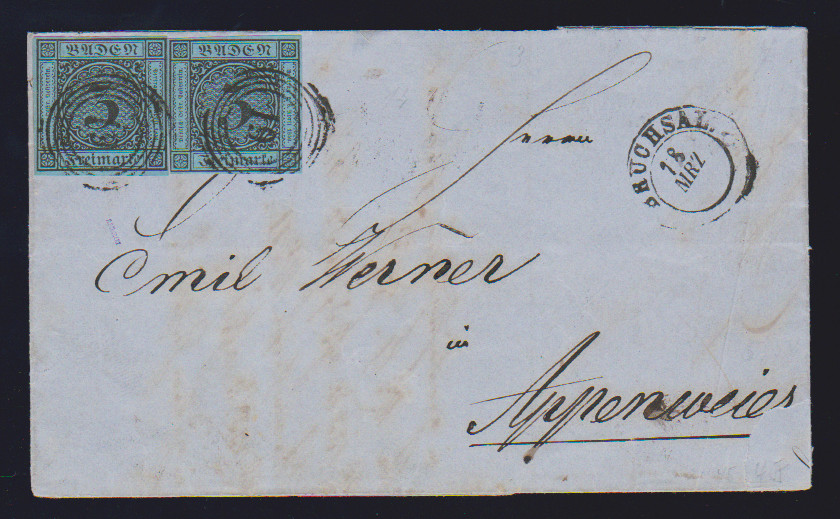 BADEN BADEN
3
Freimarke Freimarke
BRUCHSAL
18
MRZ
Herrn
Emil Werner
in
Appenweier